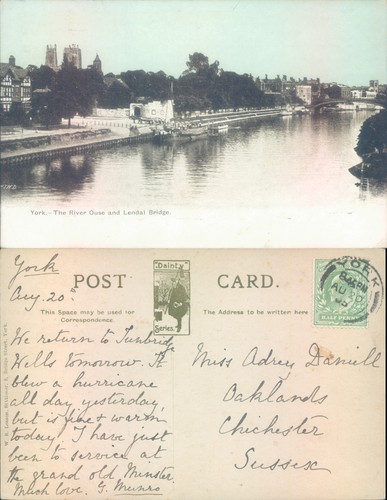 York.—The River Ouse and Lendal Bridge.
York
Aug. 20.
POST CARD.
"Dainty"
Series
This Space may be used for
Correspondence.
The Address to be written here
YORK
HALF PENNY
We return to Tunbridge
Wells tomorrow. It
blew a hurricane
all day yesterday,
but is fine & warm
today. I have just
been to service at
the grand old Minster.
Much love. G. Munro
Miss Adrey Daniell
Oaklands
Chichester
Sussex